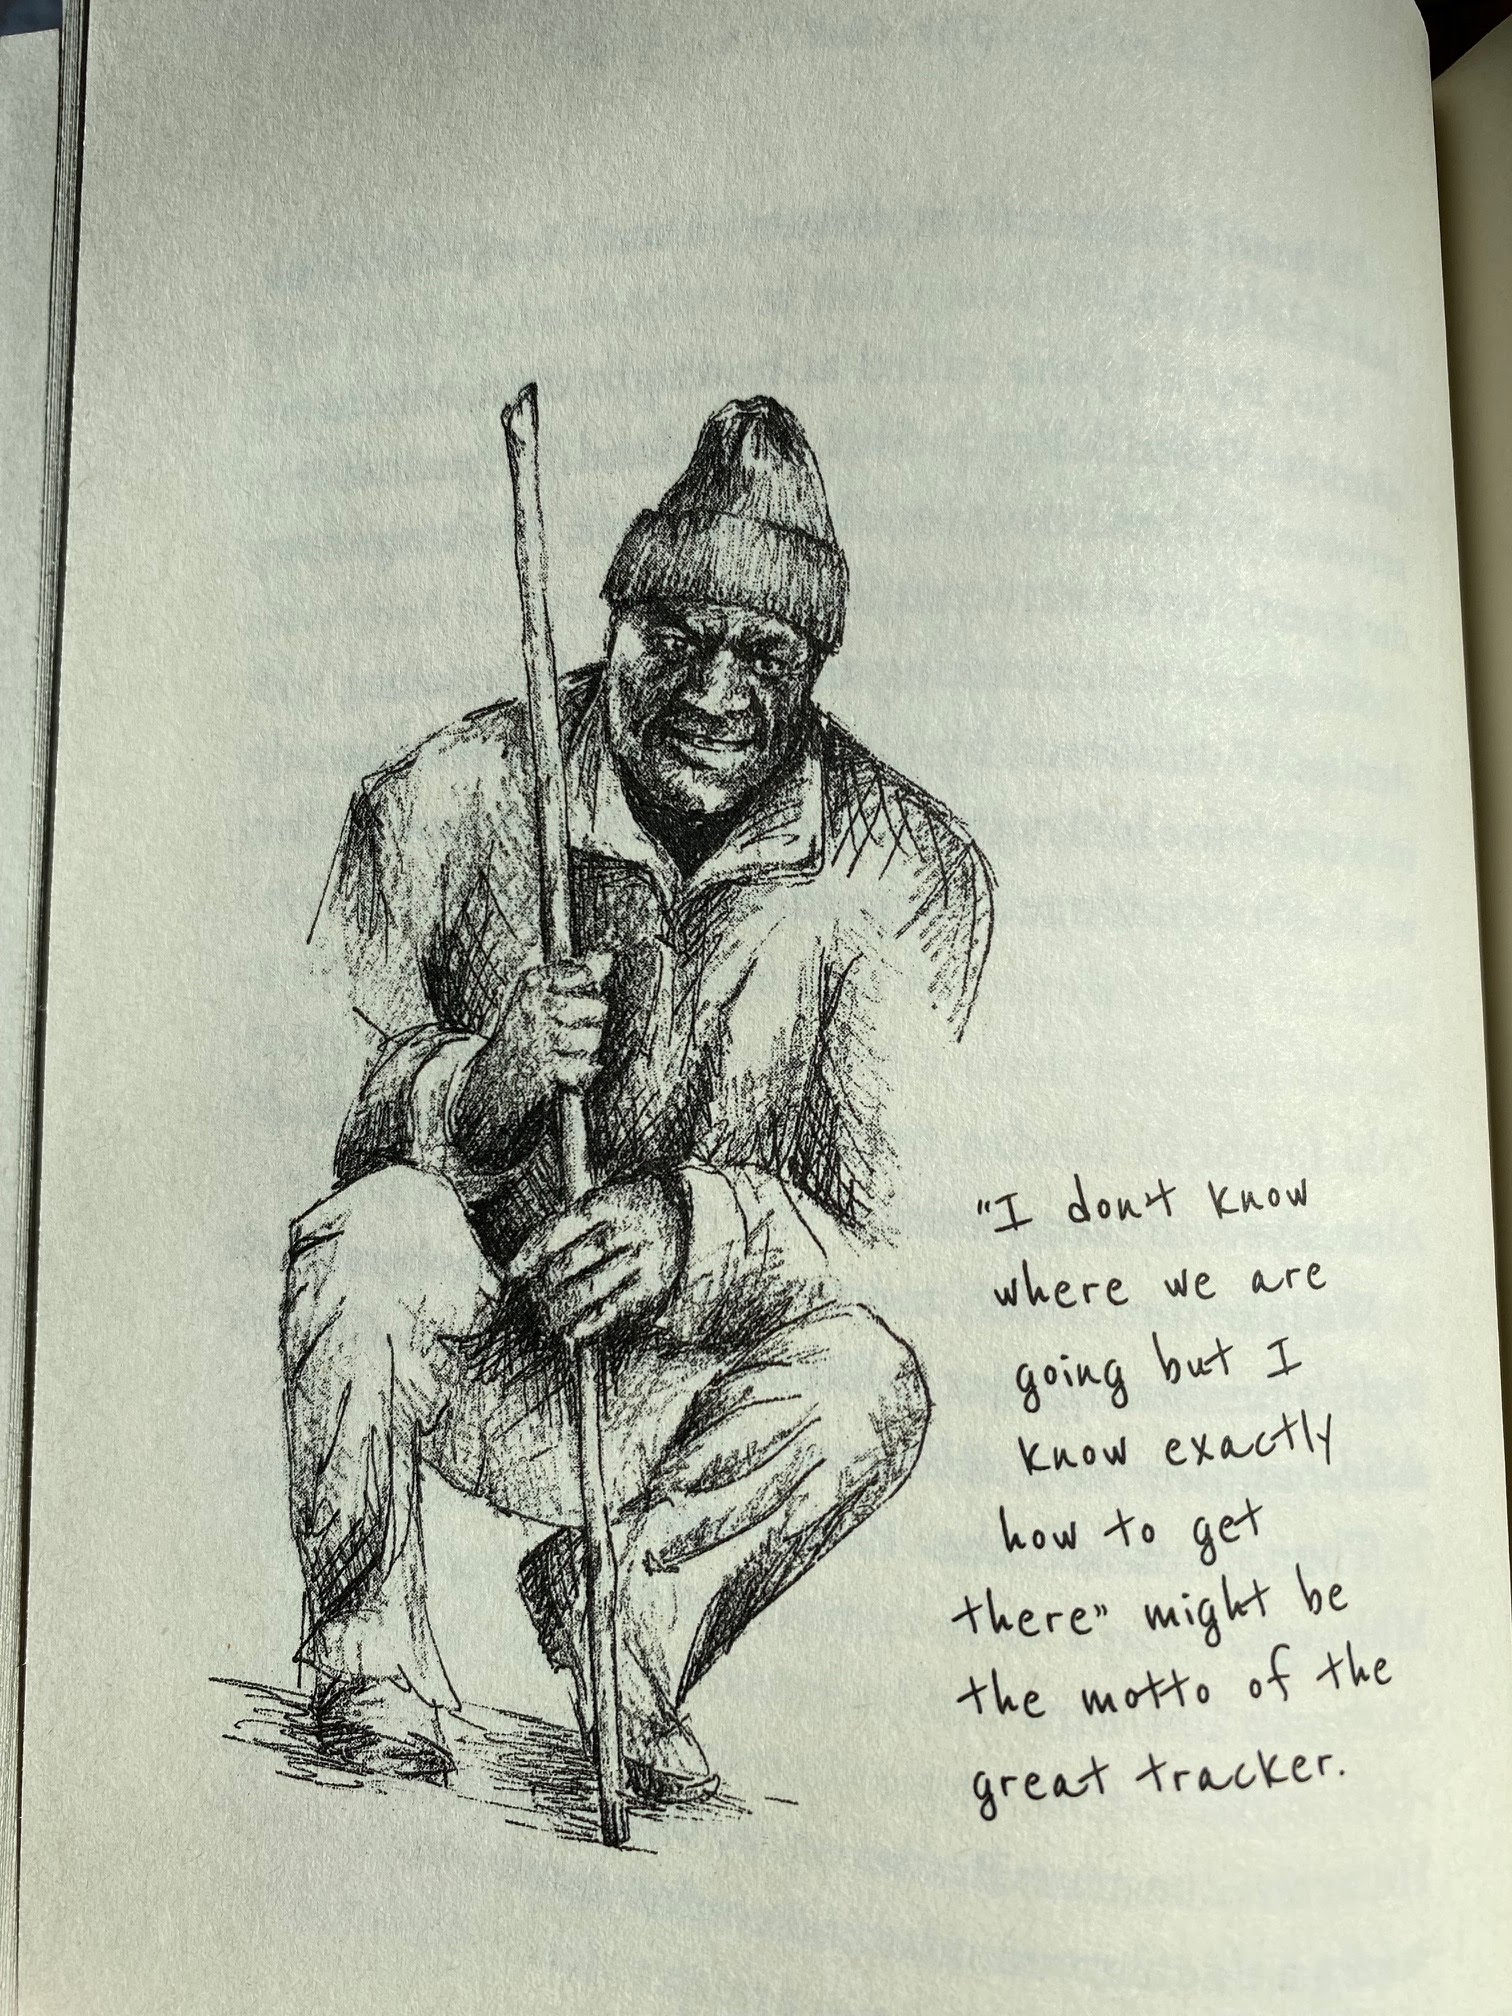 "I don't know
where we are
going but I
know exactly
how to get
there" might be
the motto of the
great tracker.